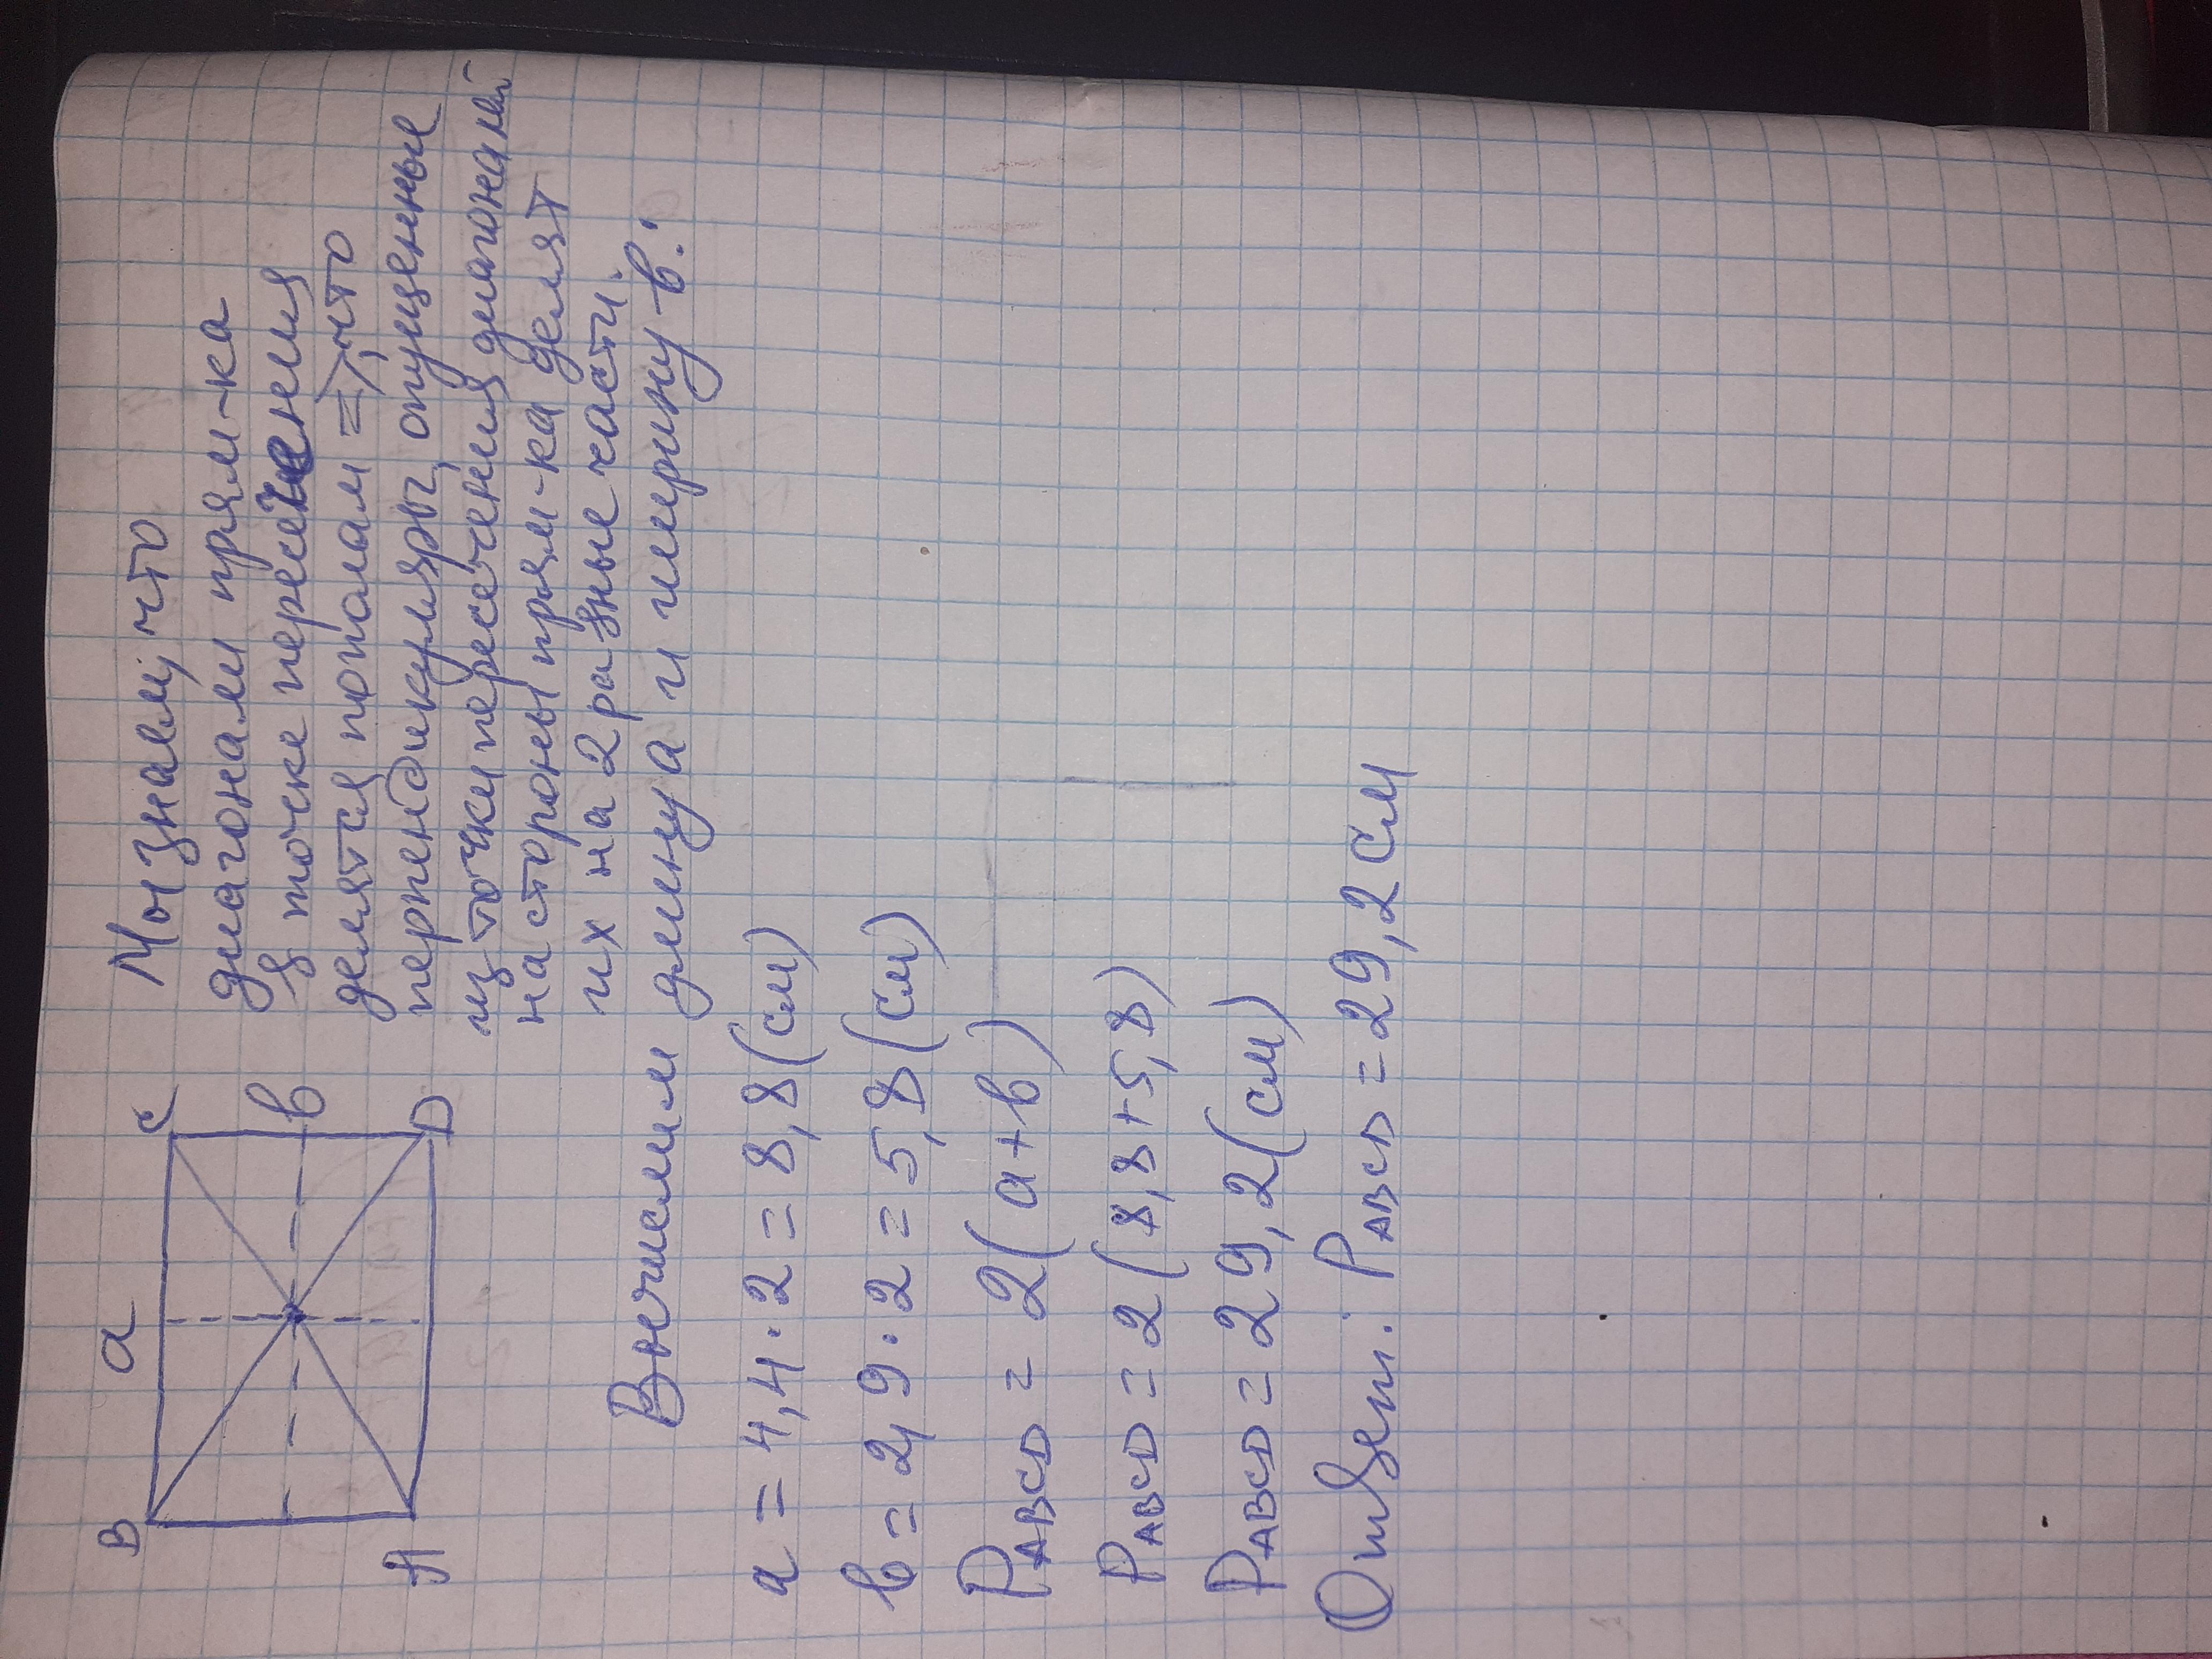 B a C
b
A D
Мы знаем, что
диагонали прям-ка
в точке пересечения
делятся пополам =>, что
перпендикуляры, опущенные
из точки пересечения диагоналей
на стороны прям-ка делят
их на 2 разные части.
Вычислим длину a и ширину b:
a = 4,4 · 2 = 8,8 (см)
b = 2,9 · 2 = 5,8 (см)
PABCD = 2(a+b)
PABCD = 2(8,8+5,8)
PABCD = 29,2 (см)
Ответ: PABCD = 29,2 см